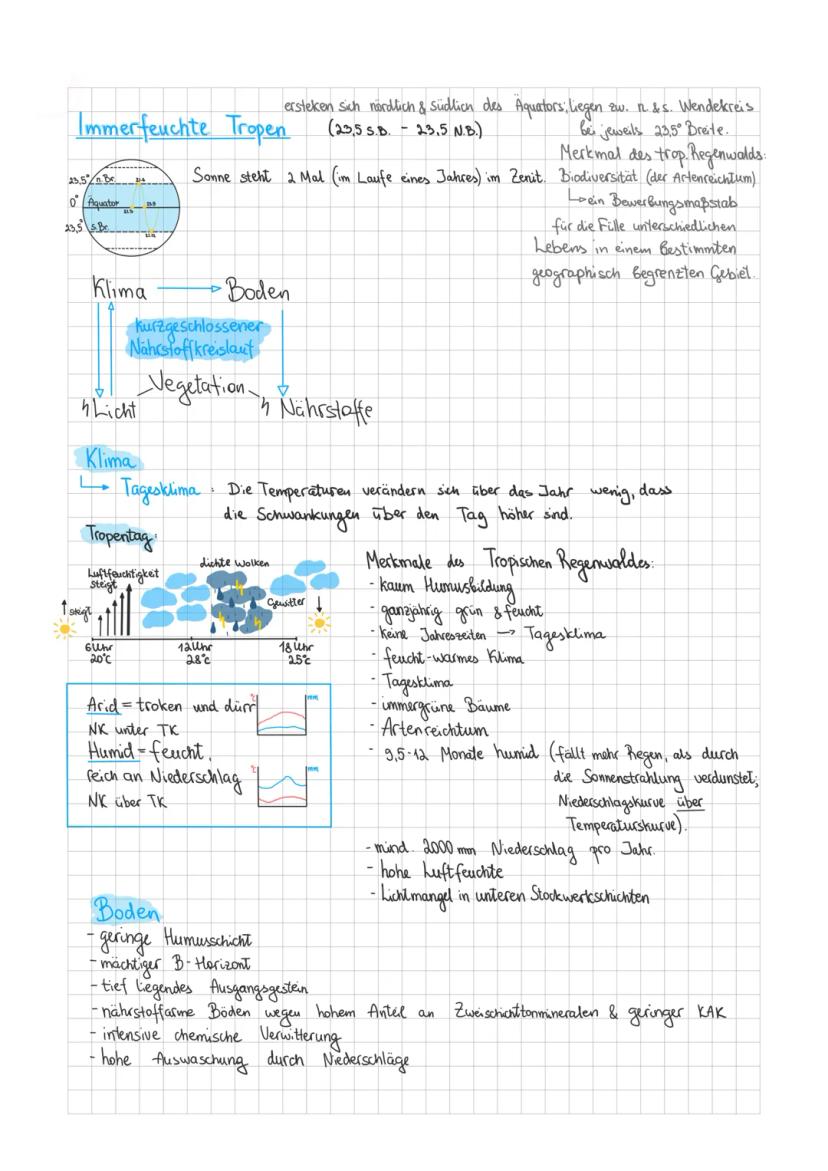 ersteken sich nördlich & südlich des Äquators; liegen zw. n. & s. Wendekreis
Immerfeuchte Tropen
(23,5 S.B. - 23,5 N.B.)
bei jeweils 23,5° Breite.
Merkmal des trop. Regenwalds:
23,5° n. Br.
0° Äquator
23,5° s. Br.
Sonne steht 2 Mal (im Laufe eines Jahres) im Zenit.
Biodiversität (der Artenreichtum)
ein Bewerbungsmaßstab
für die Fülle unterschiedlichen
Lebens in einem Bestimmten
geographisch Begrenzten Gebiet.
Klima
Boden
kurzgeschlossener
Nährstoffkreislauf
Vegetation
Licht
Nährstoffe
Klima
Tagesklima: Die Temperaturen verändern sich über das Jahr wenig, dass
die Schwankungen über den Tag höher sind.
Tropentag:
Luftfeuchtigkeit
steigt
dichte Wolken
Gewitter
steigt
6 Uhr
20°c
12 Uhr
28°c
18 Uhr
25°c
Arid = troken und dürr
NK unter TK
°C
mm
Humid = feucht,
reich an Niederschlag
NK über TK
°C
mm
Merkmale des Tropischen Regenwaldes:
- kaum Humusbildung
- ganzjährig grün & feucht
- keine Jahreszeiten → Tagesklima
- feucht-warmes Klima
- Tagesklima
- immergrüne Bäume
- Artenreichtum
- 9,5-12 Monate humid (fällt mehr Regen, als durch
die Sonnenstrahlung verdunstet;
Niederschlagskurve über
Temperaturskurve).
- mind. 2000 mm Niederschlag pro Jahr.
- hohe Luftfeuchte
- Lichtmangel in unteren Stockwerkschichten
Boden
- geringe Humusschicht
- mächtiger B-Horizont
- tief liegendes Ausgangsgestein
- nährstoffarme Böden wegen hohem Anteil an Zweischichttonmineralen & geringer KAK
- intensive chemische Verwitterung
- hohe Auswaschung durch Niederschläge